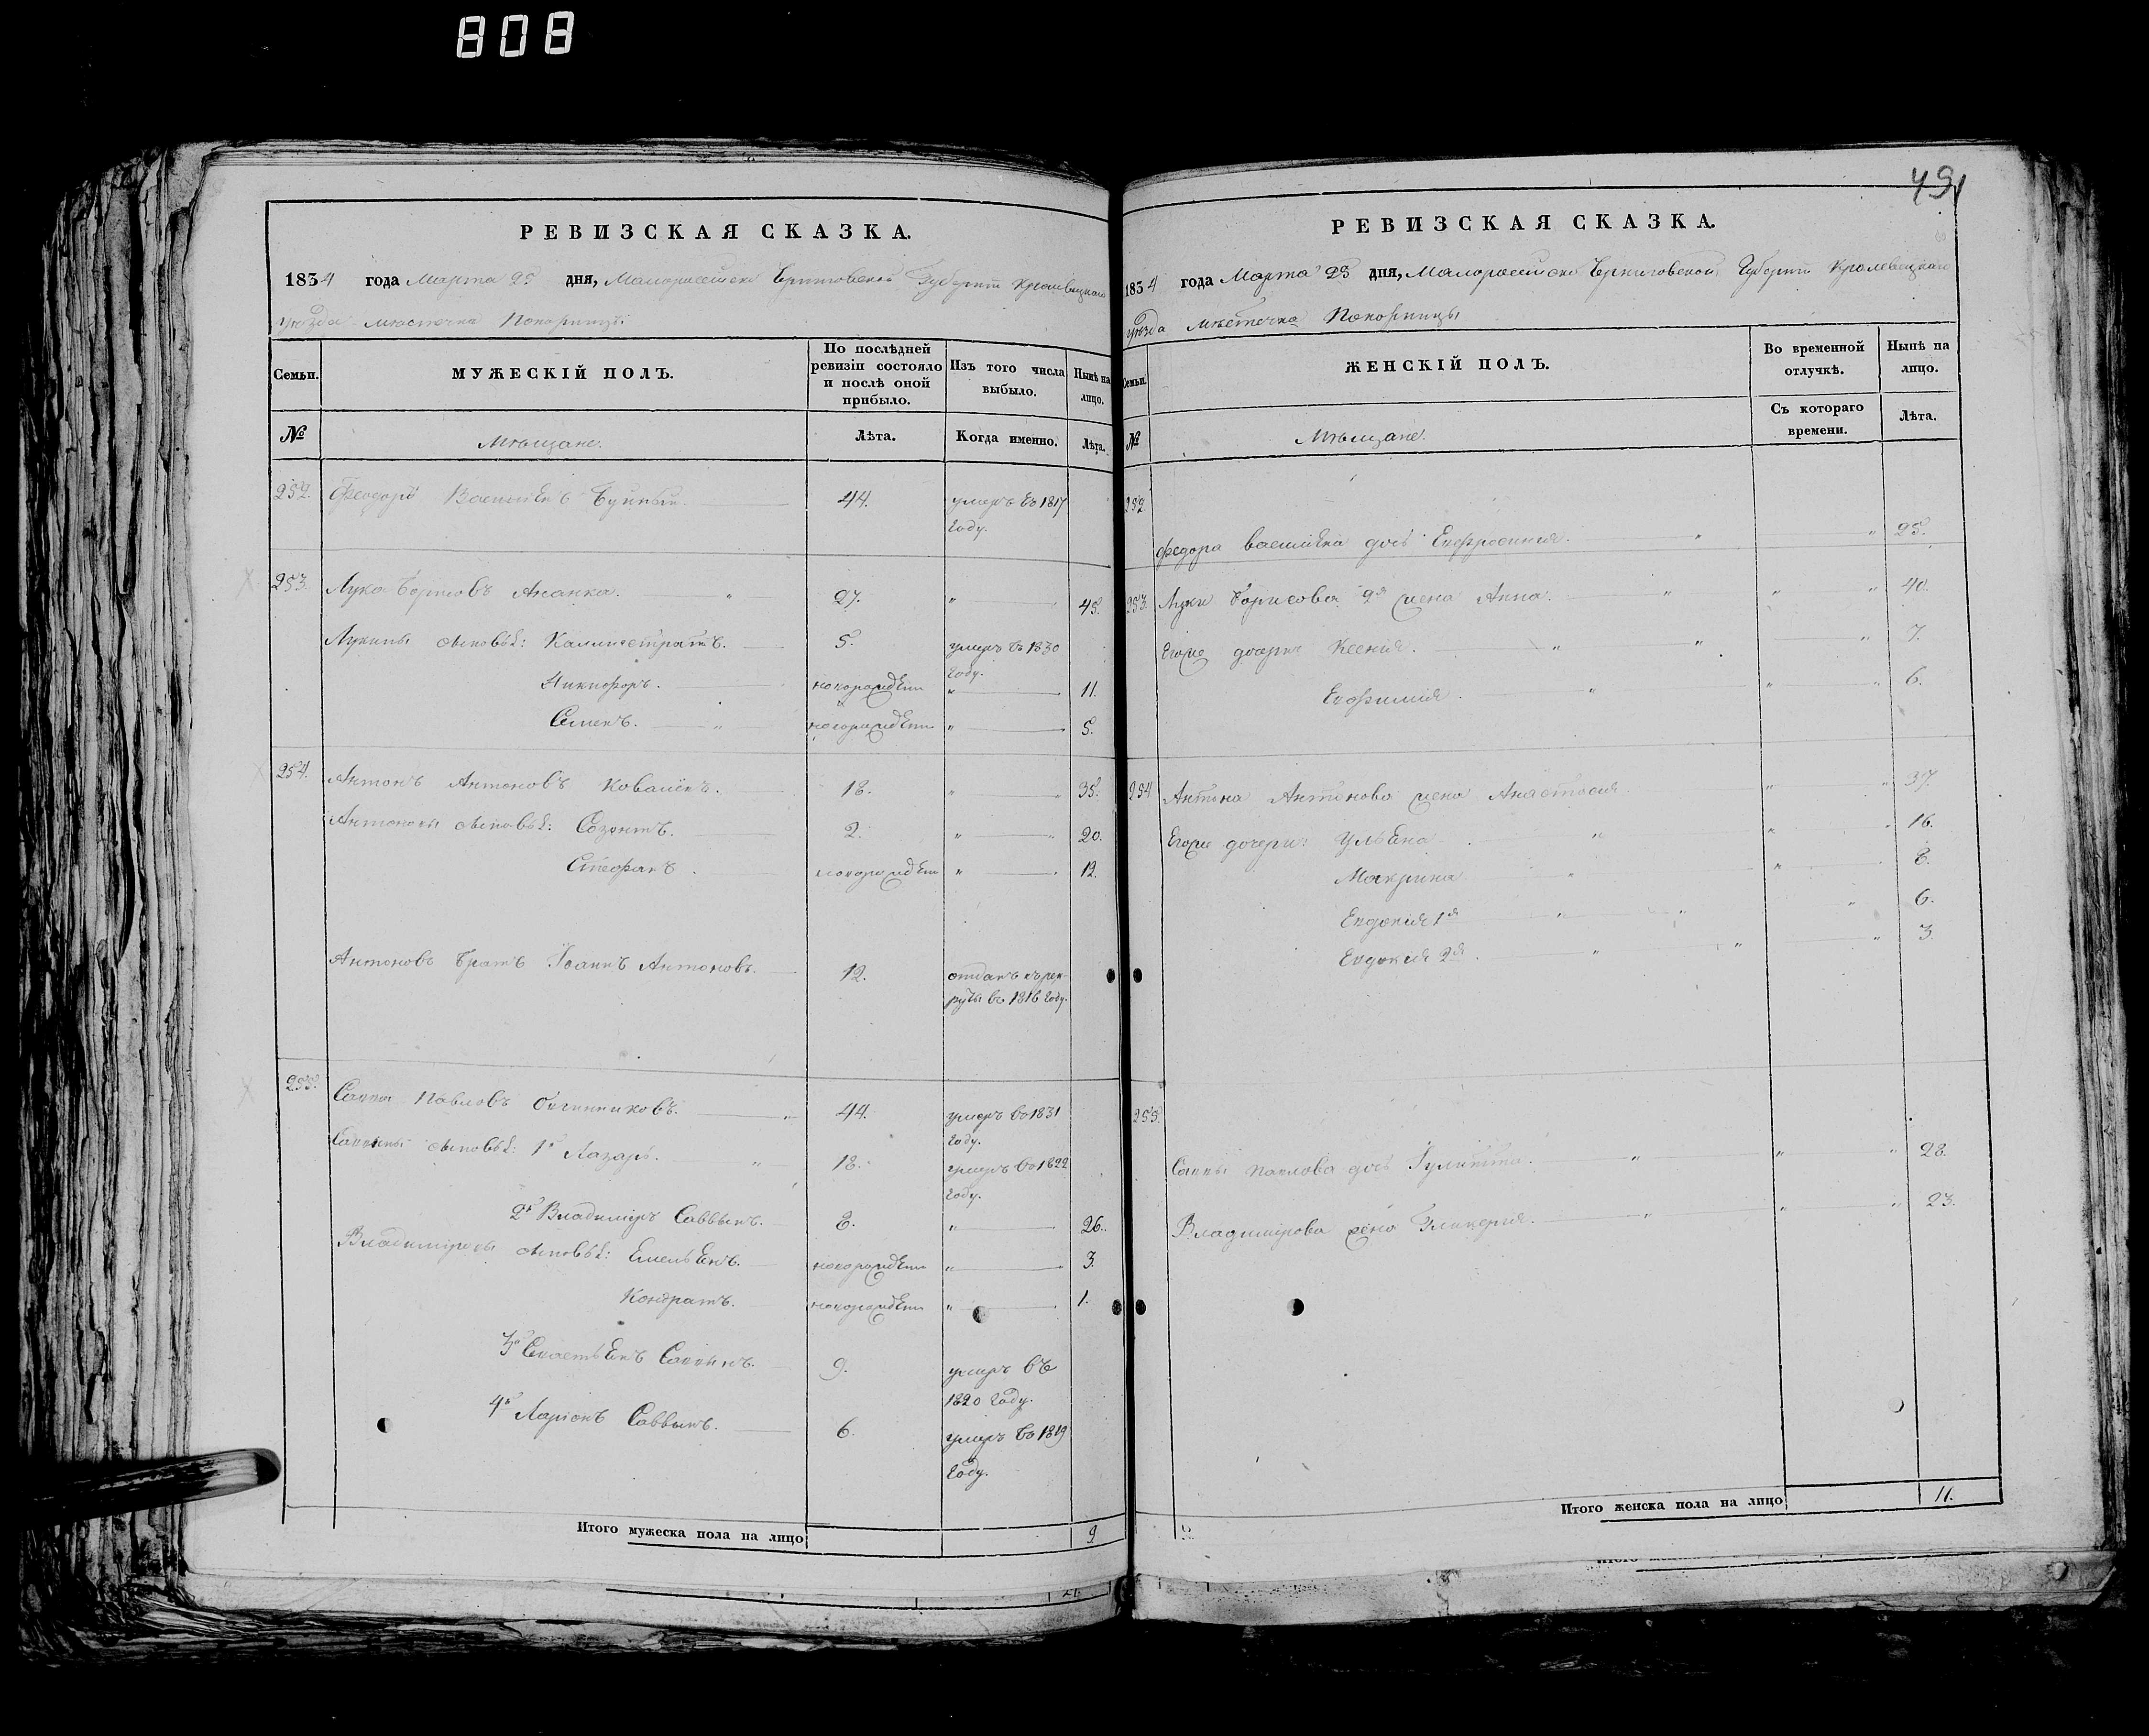 808
491
РЕВИЗСКАЯ СКАЗКА.
1834 года Марта 25 дня, Малороссійской Черниговской Губерніи Кролевецкаго
уѣзда мѣстечка Понорницы
Семьи.
МУЖЕСКІЙ ПОЛЪ.
По послѣдней ревизіи состояло и послѣ оной прибыло.
Изъ того числа выбыло.
Нынѣ на лицо.
№
Мѣщане.
Лѣта.
Когда именно.
Лѣта.
252. Феодоръ Васильевъ 44. умеръ въ 1817
году.
253. Лука Борисовъ Ананка. 27. " 45.
Лукины сыновья: Каллистратъ. 5. умеръ въ 1830
году.
Никифоръ. новорожден " 11.
Семенъ. " новорожден " 5.
254. Антонъ Антоновъ Ковалевъ. 18. " 35.
Антоновы сыновья: Созонтъ. 2. " 20.
Стефанъ новорожден " 12.
Антоновъ братъ Іоаннъ Антоновъ. 12. отданъ въ рек-
руты въ 1816 году.
255. Савва Павловъ Овчинниковъ. 44. умеръ во 1831
году.
Саввины сыновья: 1й Лазарь. " 18. умеръ во 1822
году.
2й Владиміръ Саввинъ. 8. " 26.
Владиміровы сыновья: Емельянъ. новорожден " 3.
Кондратъ. новорожден " 1.
3й Севастьянъ Саввинъ. 9. умеръ въ
1820 году.
4й Ларіонъ Саввинъ. 6. умеръ во 1819
году.
Итого мужеска пола на лицо 9
РЕВИЗСКАЯ СКАЗКА.
1834 года Марта 25 дня, Малороссійской Черниговской Губерніи Кролевецкаго
уѣзда мѣстечка Понорницы
Семьи.
ЖЕНСКІЙ ПОЛЪ.
Во временной отлучкѣ.
Нынѣ на лицо.
№
Мѣщане.
Съ котораго времени.
Лѣта.
252
Федора Васильева дочь Евфросинія. " " 25.
253. Луки Борисова 2я жена Анна. " " " 40.
Егоже дочери Ксенія. " " " 7.
Евфимія. " " " 6.
254 Антона Антонова жена Анастасія " " 37.
Егоже дочери: Ульяна " " " 16.
Макрина " " 8.
Евдокія 1я " " " 6.
Евдокія 2я. " " " 3.
255.
Саввы Павлова дочь Іулитта. " " " 28.
Владимірова жена Гликерія. " " " 23.
Итого женска пола на лицо 11.
21.